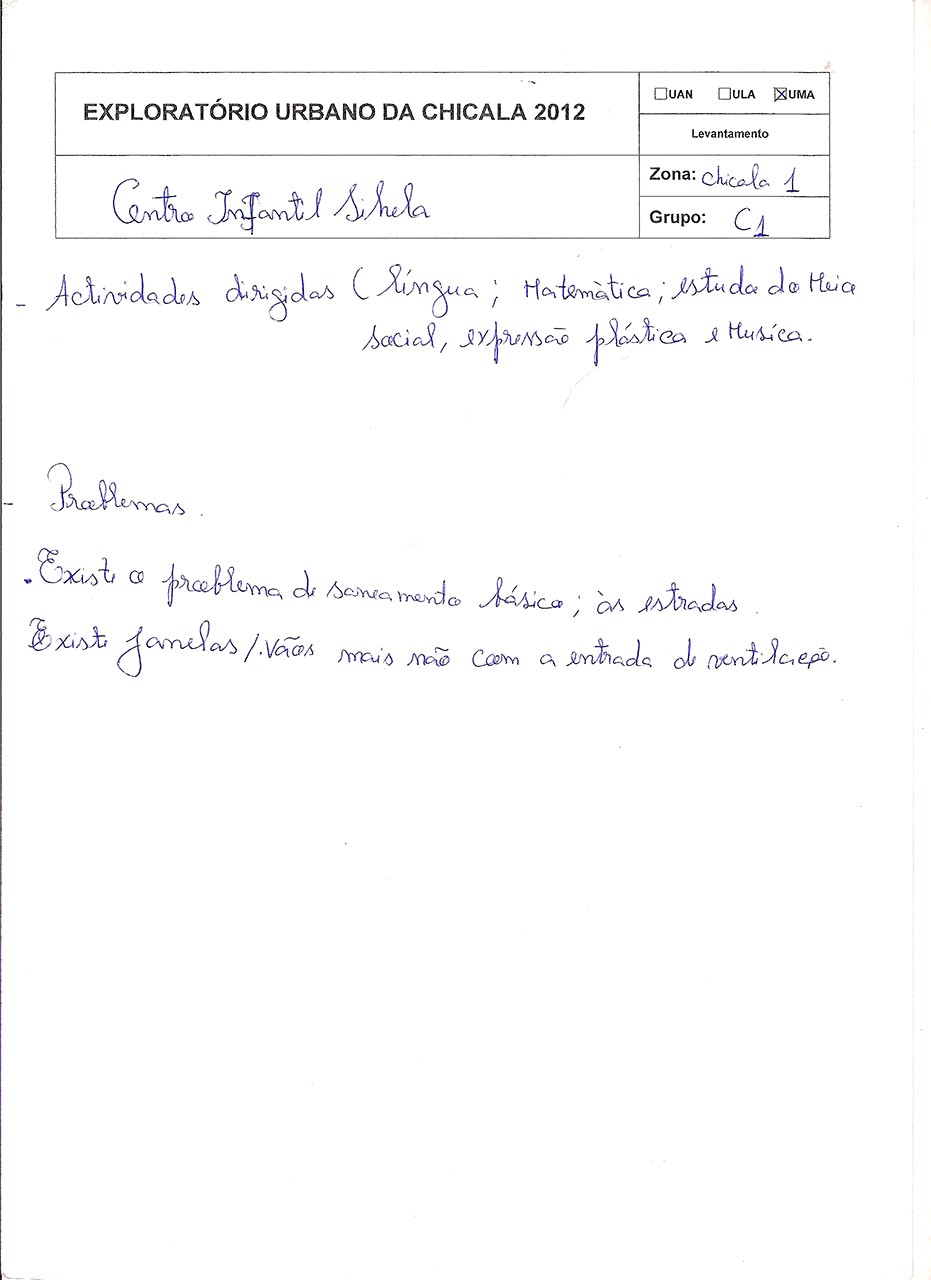 EXPLORATÓRIO URBANO DA CHICALA 2012
☐UAN ☐ULA ☒UMA
Levantamento
Zona: Chicala 1
Grupo: C1
Centro Infantil Sihela
- Actividades dirigidas (língua; Matemàtica; estudo do Meio
social, expressão plástica e Musica.
- Problemas.
. Existe o problema de saneamento básico; às estradas.
Existe janelas/.Vãos mais não com a entrada de ventilação.